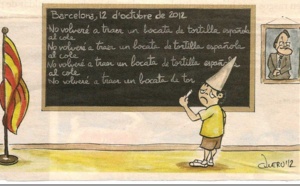 Barcelona, 12 d'octubre de 2012
No volveré a traer un bocata de tortilla española
al cole
No volveré a traer un bocata de tortilla española
al cole
No volveré a traer un bocata de tortilla española
al cole
No volveré a traer un bocata de tor